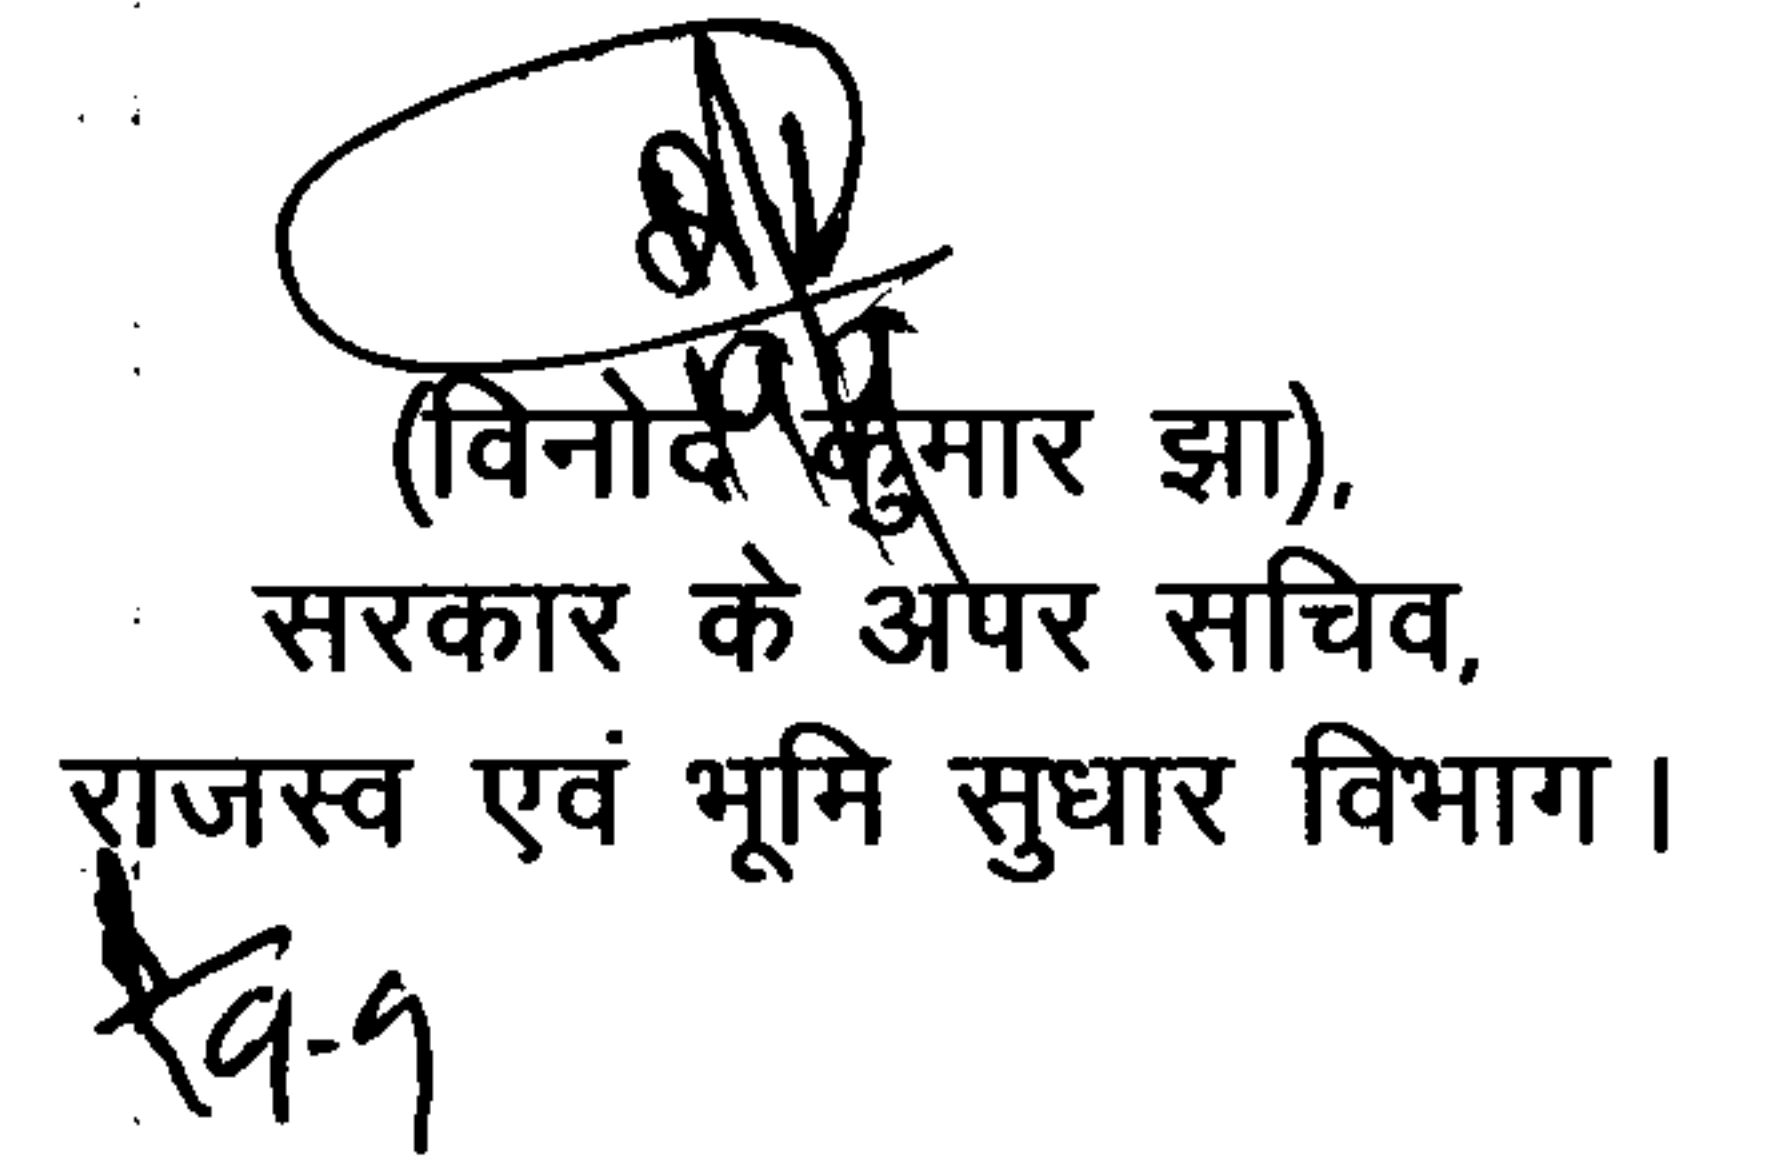 (विनोद कुमार झा),
सरकार के अपर सचिव,
राजस्व एवं भूमि सुधार विभाग।